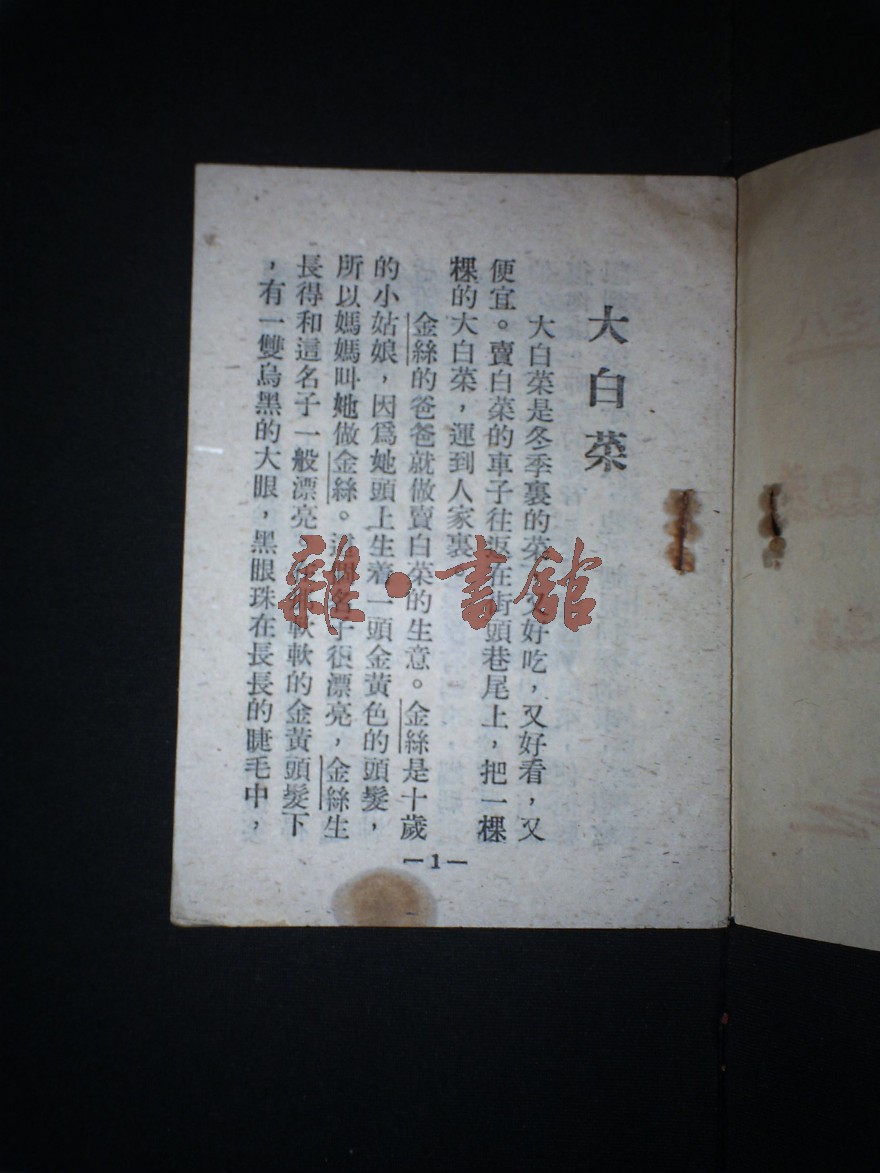 大白菜
大白菜是冬季裏的菜，又好吃，又好看，又
便宜。賣白菜的車子往返在街頭巷尾上，把一棵
棵的大白菜，運到人家裏
金絲的爸爸就做賣白菜的生意。金絲是十歲
的小姑娘，因爲她頭上生着一頭金黃色的頭髮，
所以媽媽叫她做金絲。這個名子很漂亮，金絲生
長得和這名子一般漂亮。軟軟的金黃頭髮下
，有一雙烏黑的大眼，黑眼珠在長長的睫毛中，
—1—
雜·書館